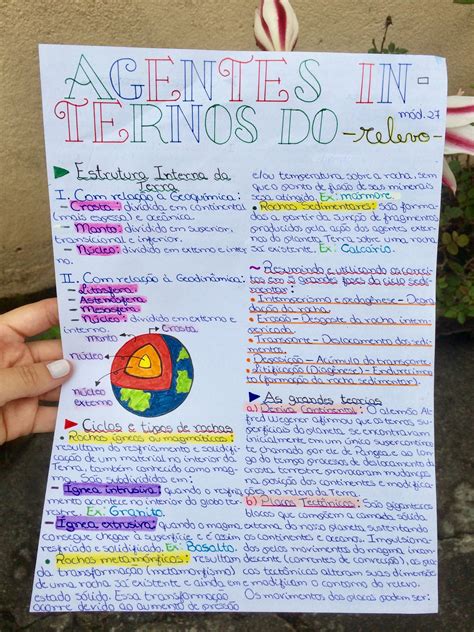 AGENTES IN-
TERNOS DO -relevo-
mód. 27
Estrutura Interna da
Terra
I. Com relação à Geoquímica:
- Crosta: dividida em continental
(mais espessa) e oceânica.
- Manto: dividido em superior,
transicional e inferior.
- Núcleo: dividido em externo e inter
no.
II. Com relação à Geodinâmica:
- Litosfera
- Astenosfera
- Mesosfera
- Núcleo: dividido em externo e
interno.
Crosta
Manto
Núcleo
Núcleo
externo
Ciclos e tipos de rochas
• Rochas ígneas ou magmáticas:
resultam do resfriamento e solidifi
cação de um material no interior da
Terra, também conhecido como mag
ma. São subdivididas em:
- Ígnea intrusiva: quando o resfria
mento acontece no interior do globo ter
restre. Ex: Granito.
- Ígnea extrusiva: quando o magma
consegue chegar à superfície e é assim
resfriado e solidificado. Ex: Basalto.
• Rochas metamórficas: resultam
da transformação (metamorfismo)
de uma rocha já existente e ainda em
estado sólido. Essa transformação
ocorre devido ao aumento de pressão
e/ou temperatura sobre a rocha, sem
que o ponto de fusão de seus minerais
seja atingido. Ex: mármore.
• Rochas Sedimentares: são forma-
das a partir da junção de fragmentos
produzidos pela ação dos agentes exter
nos do planeta Terra sobre uma rocha
já existente. Ex: Calcário.
~ Resumindo e utilizando os concei
tos são 5 grandes fases do ciclo sedi
mentar:
• Intemperismo e pedogênese - Degra
dação da rocha.
• Erosão - Desgaste da rocha intem
perizada.
• Transporte - Deslocamento dos sedi
mentos.
• Deposição - Acúmulo do transporte
• Litificação (Diagênese) - Endurecimen
to (formação da rocha sedimentar).
As grandes teorias
a) Deriva Continental: O alemão Al
fred Wegener afirmou que as terras su
perficiais do planeta, se encontravam
inicialmente em um único supercontinen
te chamado por ele de Pangea e ao lon
go do tempo processos de deslocamento da
crosta terrestre provocaram mudanças
na posição dos continentes e modificaçõ
es no relevo da Terra.
b) Placas Tectônicas: São gigantescos
blocos que compõem a camada sólida
externa do nosso planeta sustentando
os continentes e oceanos. Impulsiona
das pelos movimentos do magma incan
descente (correntes de convecção), as pla
cas tectônicas alteram suas dimensões
e modificam o contorno do relevo.
Os movimentos das placas podem ser: